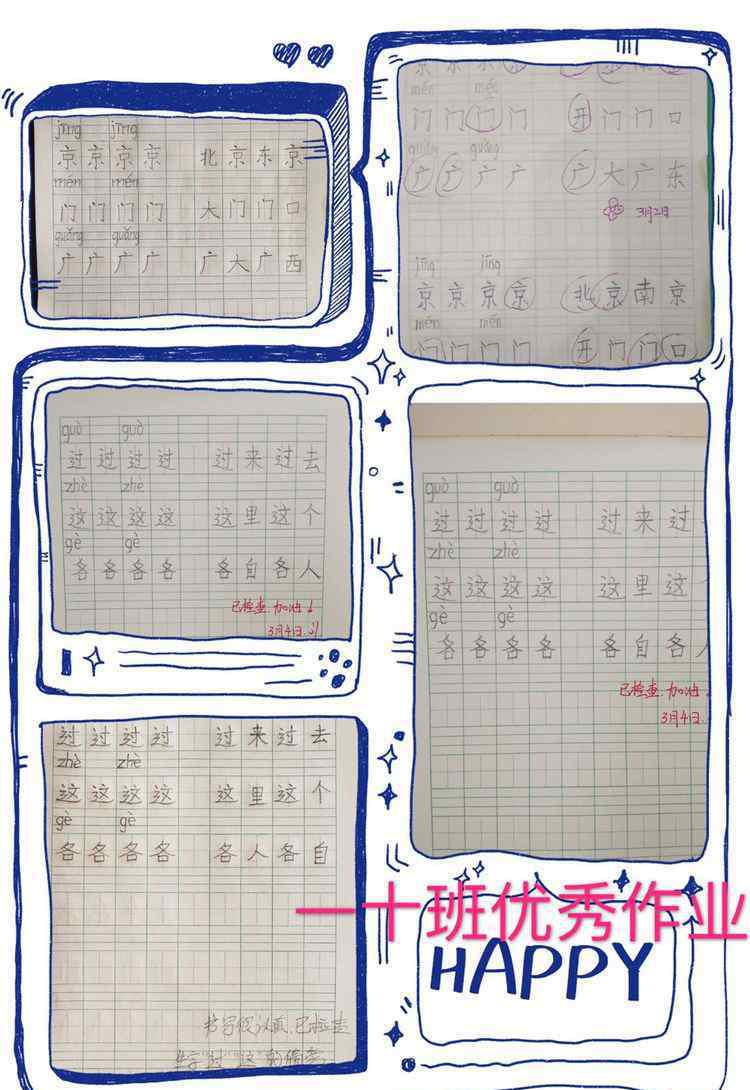 jīng jīng
京京京京 北京东京
mén mén
门门门门 大门门口
guǎng guǎng
广广广广 广大广西
mén mén
门门门门 开门门口
guǎng guǎng
广广广广 广大广东
3月2日
jīng jīng
京京京京 北京南京
mén mén
门门门门 开门门口
guò guò
过过过过 过来过去
zhè zhè
这这这这 这里这个
gè gè
各各各各 各自各人
已检查.加油!
3月4日.
guò guò
过过过过 过来过
zhè zhè
这这这这 这里这
gè gè
各各各各 各自各人
已检查.加油!
3月4日.
过过过过 过来过去
zhè zhè
这这这这 这里这个
gè gè
各各各各 各人各自
书写很认真,已检查
一十班优秀作业
HAPPY